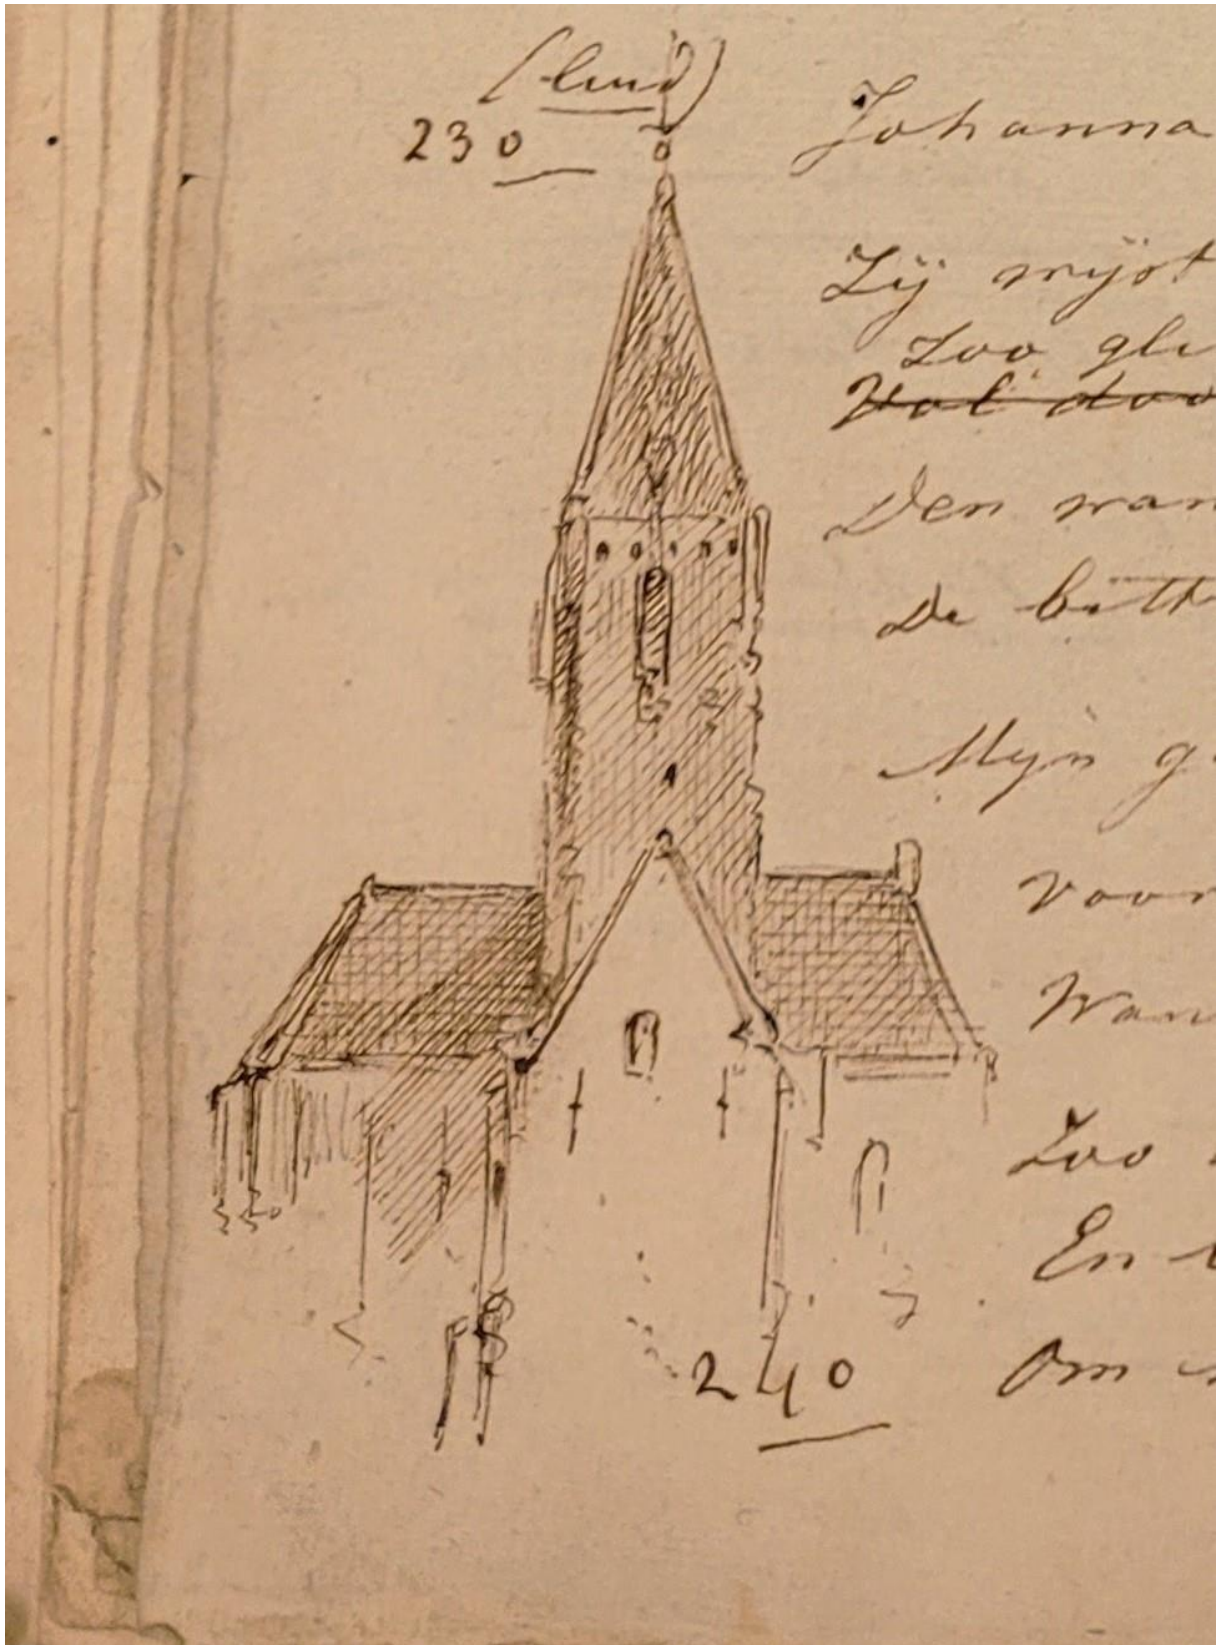 (luid)
230
Johanna
Zij wijst
Zoo gli
Vol doo
Den wan
De bitt
Mijn g
voor
Wan
Zoo
En
240
Om